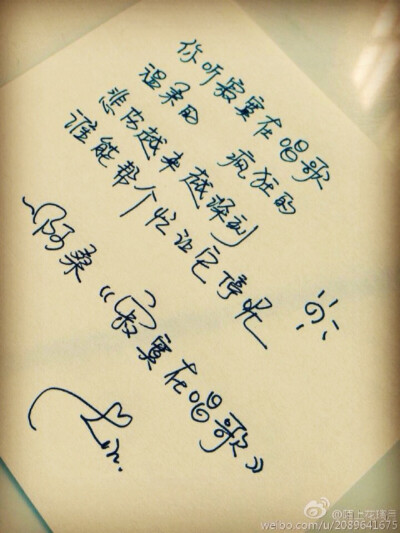 你听寂寞在唱歌
温柔的 疯狂的
悲伤越来越深刻
谁能帮个忙让它停呢
~阿桑《寂寞在唱歌》
Lin.
@陌上花搞凊
weibo.com/u/2089641675